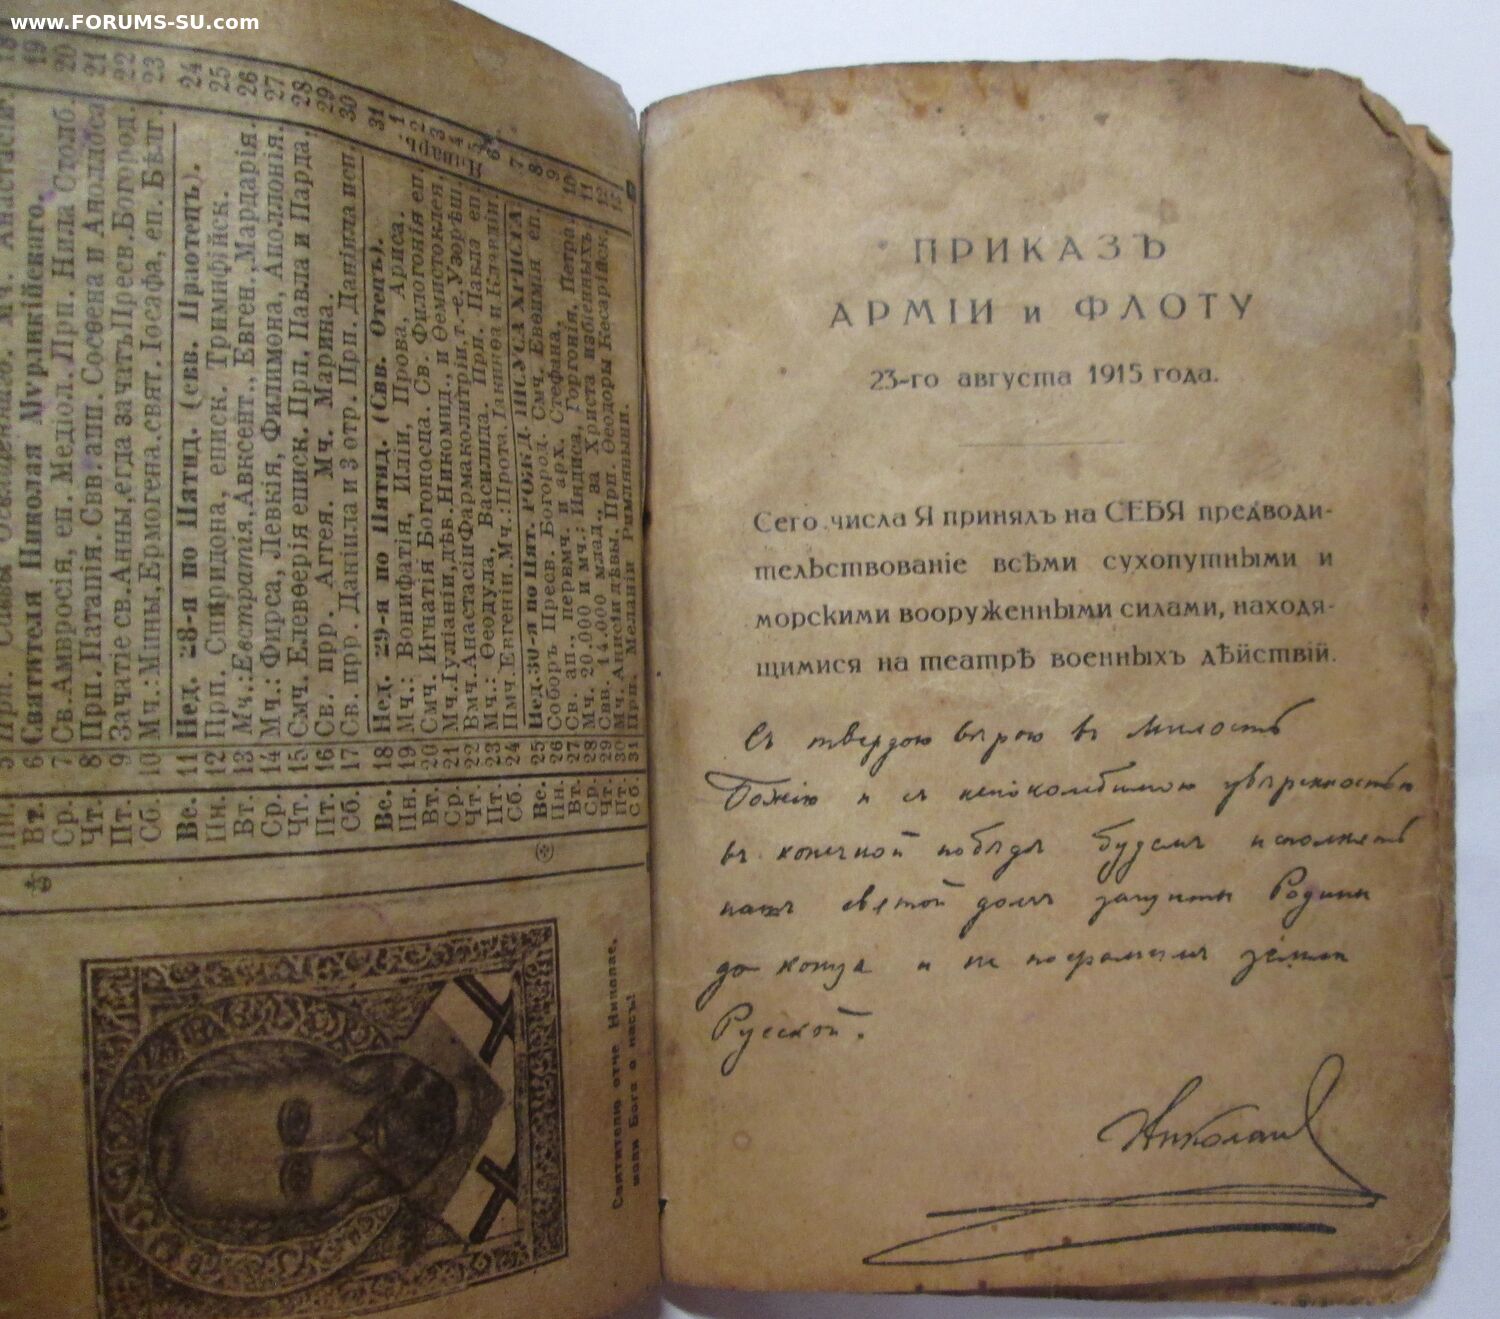 www.FORUMS-SU.com
6 Святителя Николая Мурликійскаго.
7 Св. Амвросія, еп. Медіол. Прп. Нила Столб.
8 Прп. Патапія. Свв. апп. Сосѳена и Аполлоса
9 Зачатіе св. Анны, егда зачатъ Пресв. Богород.
10 Мч.: Мины, Ермогена. свят. Іоасафа, еп. Бѣлг.
Вс. 11 Нед. 28-я по Пятид. (свв. Праотецъ). 24
Пн. 12 Прп. Спиридона, еписк. Тримифійск. 25
Вт. 13 Мч.: Евстратія, Авксент., Евген., Мардарія. 26
Ср. 14 Мч.: Фирса, Левкія, Филимона, Аполлонія. 27
Чт. 15 Смч. Елевѳерія еписк. Прп. Павла и Парда. 28
Пт. 16 Св. прр. Аггея. Мч. Марина. 29
Сб. 17 Св. прр. Даніила и 3 отр. Прп. Даніила исп. 30
Январь.
Вс. 18 Нед. 29-я по Пятид. (Свв. Отецъ). 31
Пн. 19 Мч.: Вонифатія, Иліи, Прова, Ариса. 1
Вт. 20 Смч. Игнатія Богоносца. Св. Филогонія еп. 2
Ср. 21 Мч. Іуліаніи, дѣв. Никомид., и Ѳемистоклея. 3
Чт. 22 Вмч. Анастасіи Фармаколитріи, т.-е. Узорѣш. 4
Пт. 23 Мч.: Ѳеодула, Василида. Прп. Павла еп. 5
Сб. 24 Пмч. Евгеніи. Мч.: Прота, Іакинѳа и Клавдіи. 6
Вс. 25 Нед. 30-я по Пят. РОЖД. ІИСУСА ХРИСТА. 7
Пн. 26 Соборъ Пресв. Богород. Смч. Евѳимія еп. 8
Вт. 27 Св. ап., первмч. и арх. Стефана. 9
Ср. 28 Мч. 20.000 и мч.: Индиса, Горгонія, Петра. 10
Чт. 29 Свв. 14.000 млад., за Христа избіенныхъ. 11
Пт. 30 Мч. Анисіи дѣвы. Прп. Ѳеодоры Кесарійск. 12
Сб. 31 Прп. Меланіи Римляныни. 13
Святителю отче Николае,
моли Бога о насъ!
ПРИКАЗЪ
АРМІИ и ФЛОТУ
23-го августа 1915 года.
Сего числа Я принялъ на СЕБЯ предводи-
тельствованіе всѣми сухопутными и
морскими вооруженными силами, находя-
щимися на театрѣ военныхъ дѣйствій.
Съ твердою вѣрою въ милость
Божію и съ непоколебимою увѣренностью
въ конечной побѣдѣ будемъ исполнять
нашъ святой долгъ защиты Родины
до конца и не посрамимъ земли
Русской.
Николай